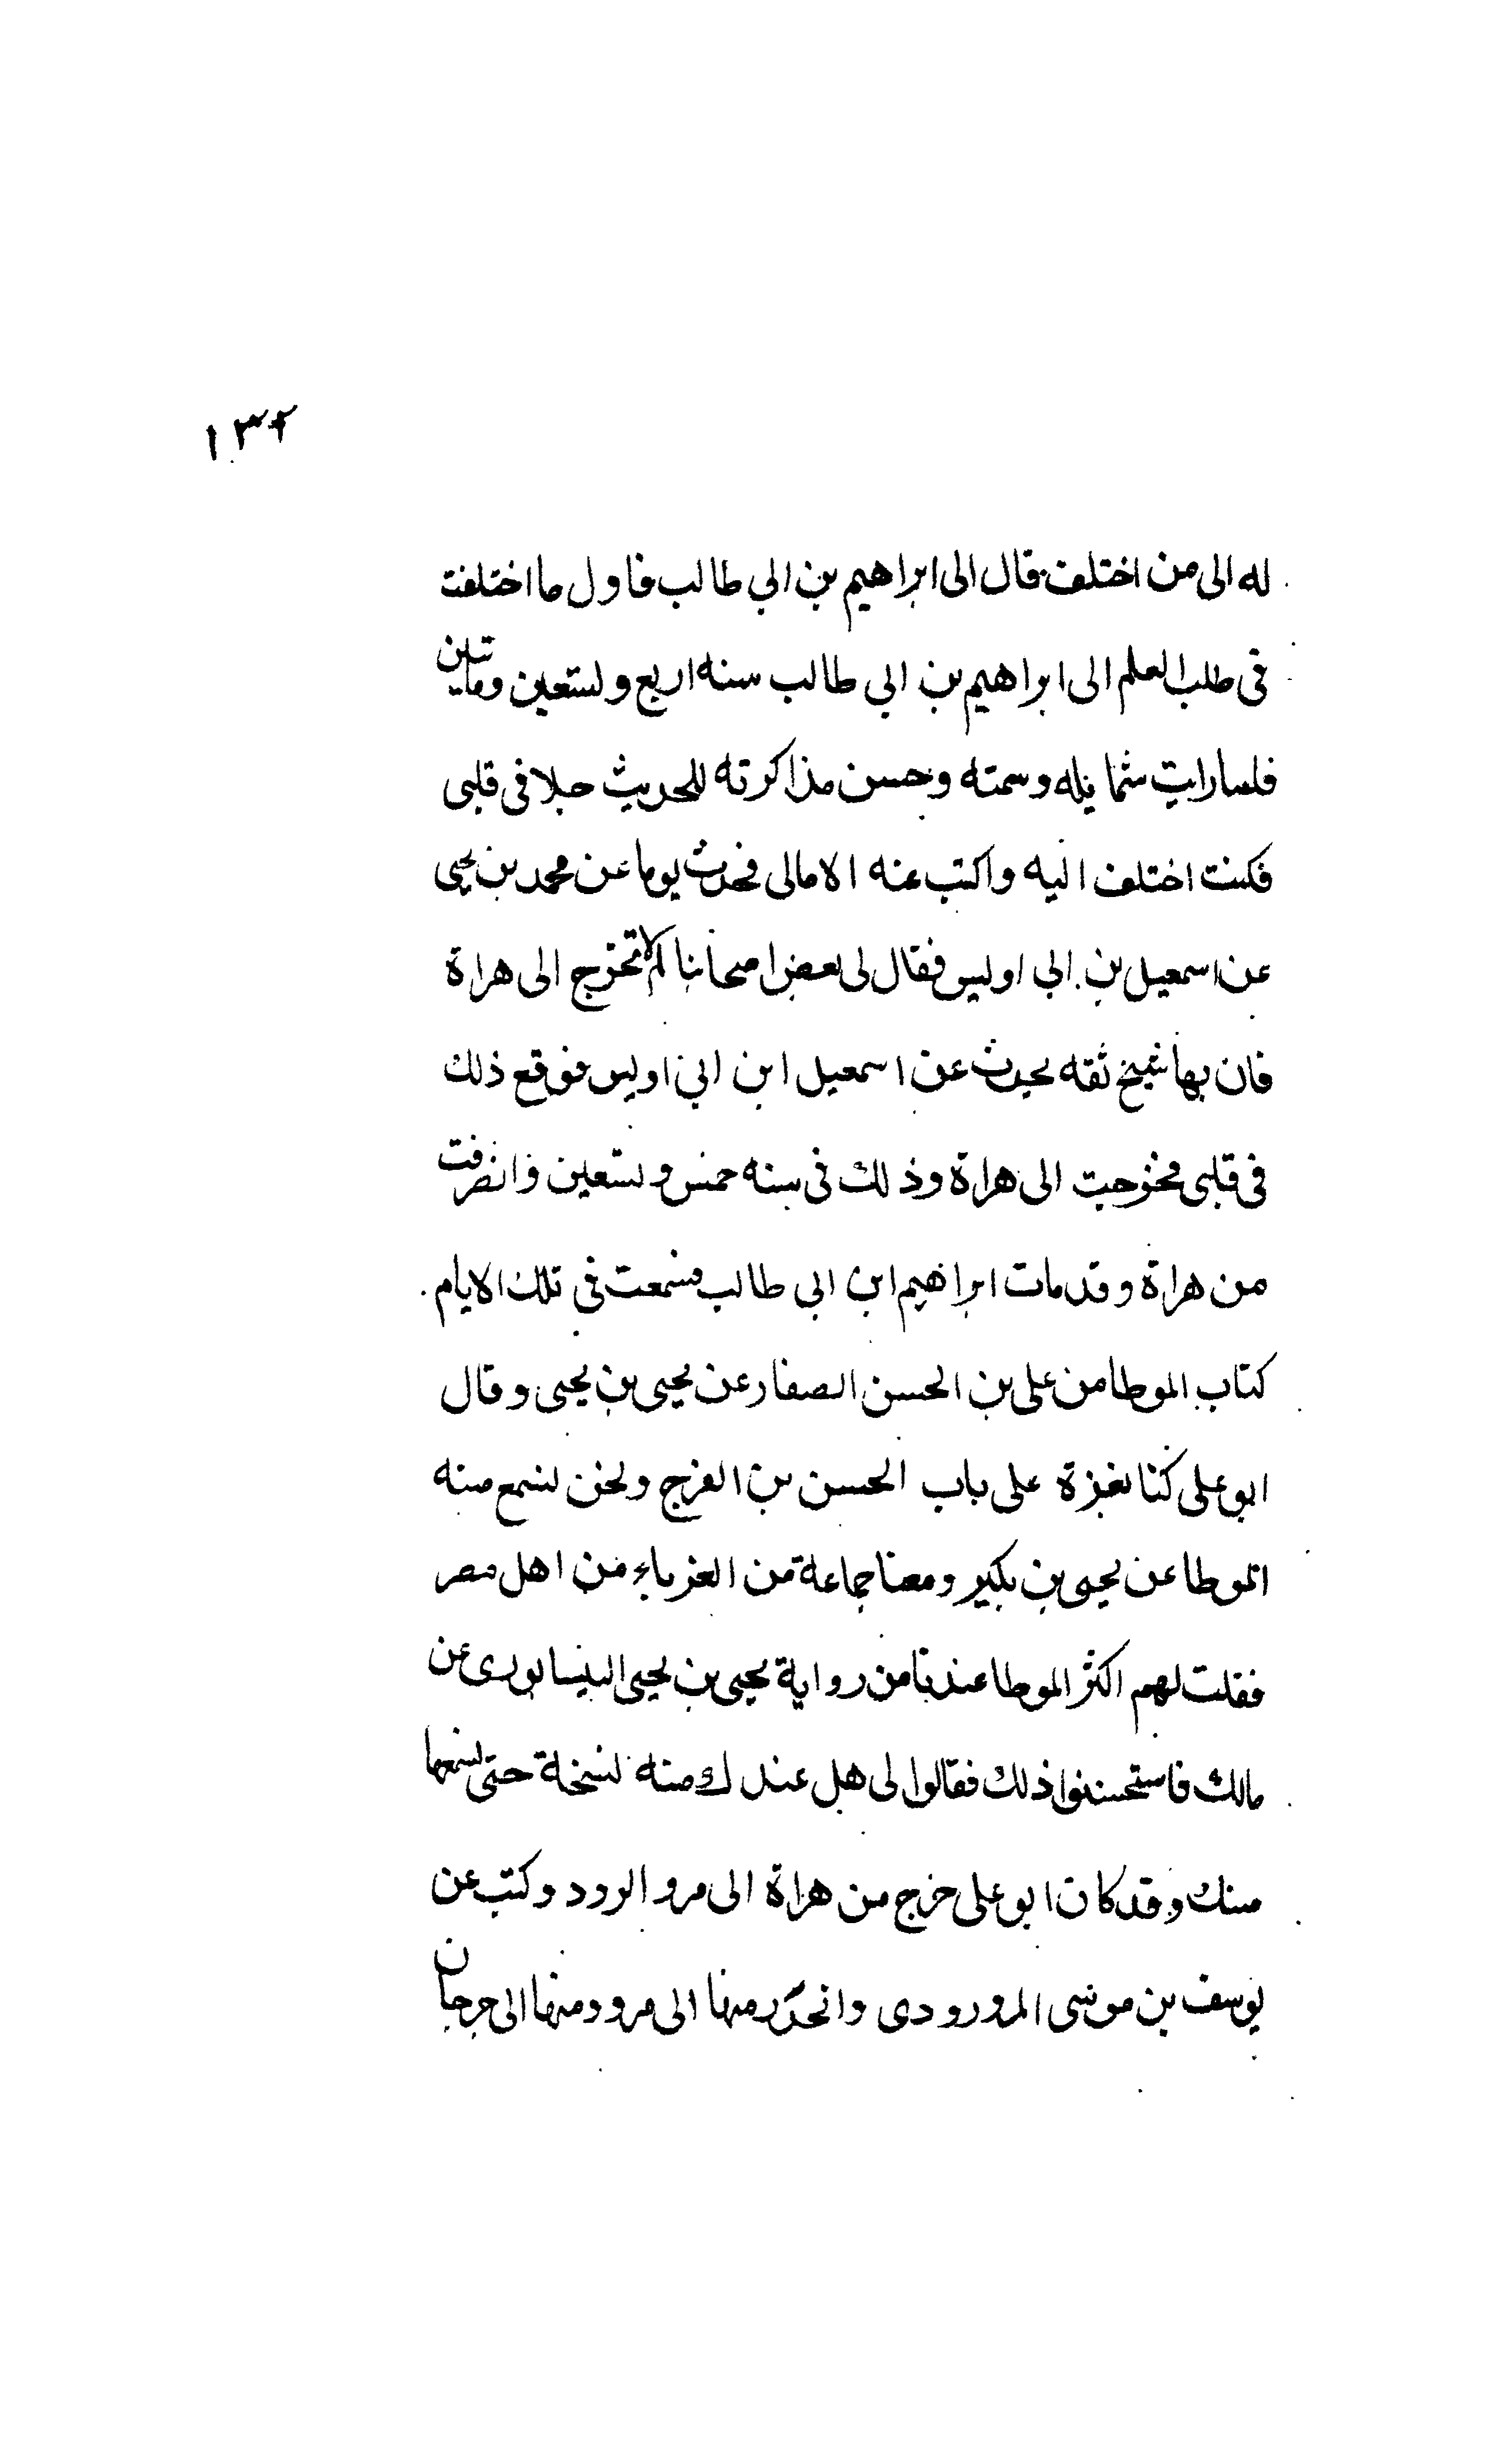 ١٣٢
له الى من اختلف فقال الى ابراهيم بن ابي طالب فاول ما اختلفت
فى طلب العلم الى ابراهيم بن ابي طالب سنه اربع وتسعين ومايتين
فلما رايت شمايله وسمته وحسن مذاكرته للحديث حلا فى قلبى
فكنت اختلف اليه واكتب عنه الامالى فحدث يوما عن محمد بن يحيى
عن اسمعيل بن ابي اويس فقال لى بعض اصحابنا لم لا تخرج الى هراة
فان بها شيخ ثقه يحدث عن اسمعيل ابن ابي اويس فوقع ذلك
فى قلبى فخرجت الى هراة وذلك فى سنه خمس وتسعين وانصرفت
من هراة وقد مات ابراهيم ابن ابى طالب فسمعت فى تلك الايام
كتاب الموطا من على بن الحسن الصفار عن يحيى بن يحيى وقال
ابو على كنا بغزة على باب الحسن بن الفرج ونحن نسمع منه
الموطا عن يحيى بن بكير ومعنا جماعة من الغرباء من اهل مصر
فقلت لهم اكثر الموطا عندنا من رواية يحيى بن يحيى النيسابورى عن
مالك فاستحسنوا ذلك فقالوا لى هل عندك منه نسخة حتى نسمعها
منك وقد كان ابو على خرج من هراة الى مرو الرود وكتب عن
يوسف بن موسى المرورودى وانحدر منها الى مرو ومنها الى جرجان